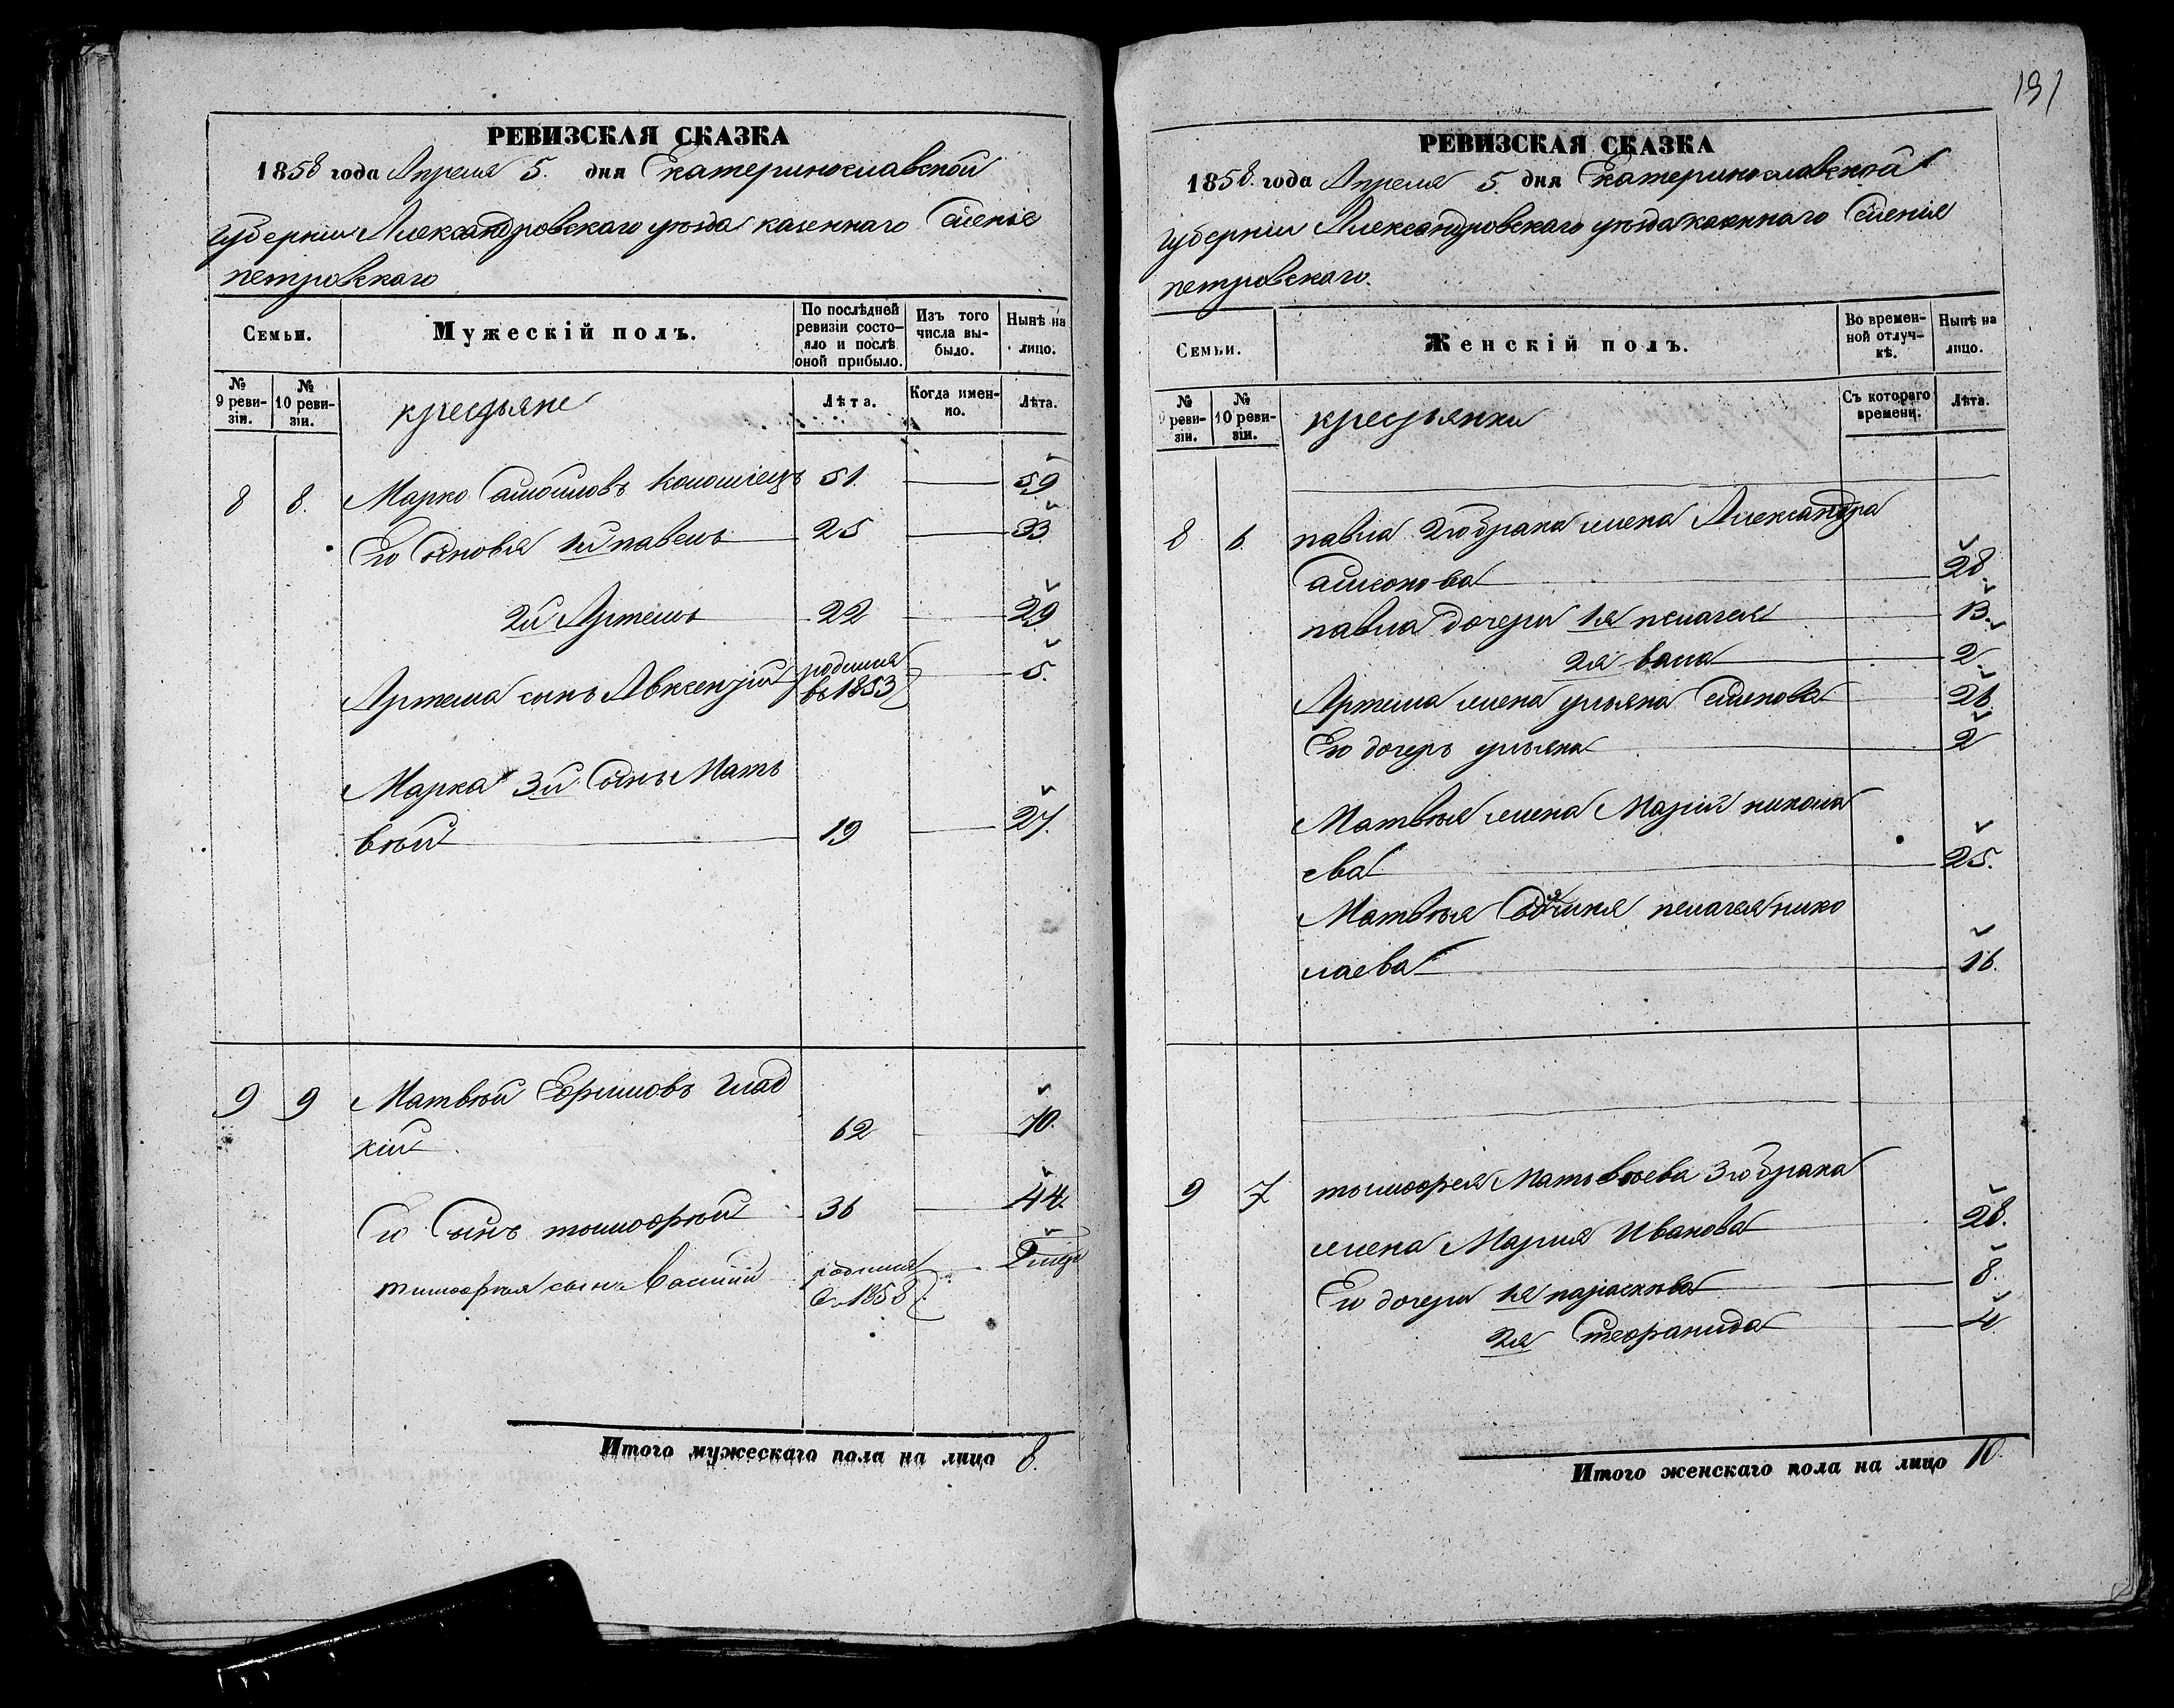 РЕВИЗСКАЯ СКАЗКА
1858 года Апреля 5. дня Екатеринославской
губернiи Александровскаго уѣзда казеннаго Селенiя
петровскаго
Семьи.
Мужескiй полъ.
По послѣдней ревизiи состояло и послѣ оной прибыло.
Изъ того числа выбыло.
Нынѣ на лицо.
№ 9 ревизiи.
№ 10 ревизiи.
крестьяне
Лѣта.
Когда именно.
Лѣта.
8 8. Марко Самойловъ Коломiецъ 51. 59
Его Сыновья 1й павелъ 25 33
2й Артемъ 22 29
Артема сынъ Авксентiй родился въ 1853 5.
Марка 3й Сынъ Мать
вѣй 19 27.
9 9 Матвѣй Ефимовъ Глад
кiй 62 70.
Его Сынъ тимофѣй 36 44.
тимофѣя сынъ Василiй родился въ 1858
Итого мужескаго пола на лицо 8.
191
РЕВИЗСКАЯ СКАЗКА
1858. года Апреля 5. дня Екатеринославской
губернiи Александровскаго уѣзда казеннаго Селенiя
петровскаго.
Семьи.
Женскiй полъ.
Во временной отлучкѣ.
Нынѣ на лицо.
№ 9 ревизiи.
№ 10 ревизiи.
крестьянки
Съ котораго времени.
Лѣта.
8 6. павла 2го брака жена Александра
28.
павла дочери 1я пелагея 13.
2я 2.
Артема жена ульяна Семенова 26.
Его дочерь ульяна 2
Матвѣя жена Марiя никола
ева 25.
Матвѣя пелагея нико
лаева 16.
9 7 тимофея Матвѣева 3го брака
жена Мария Иванова 28.
Его дочери 1я параскѣва 8.
2я Стефанида 4.
Итого женскаго пола на лицо 10.